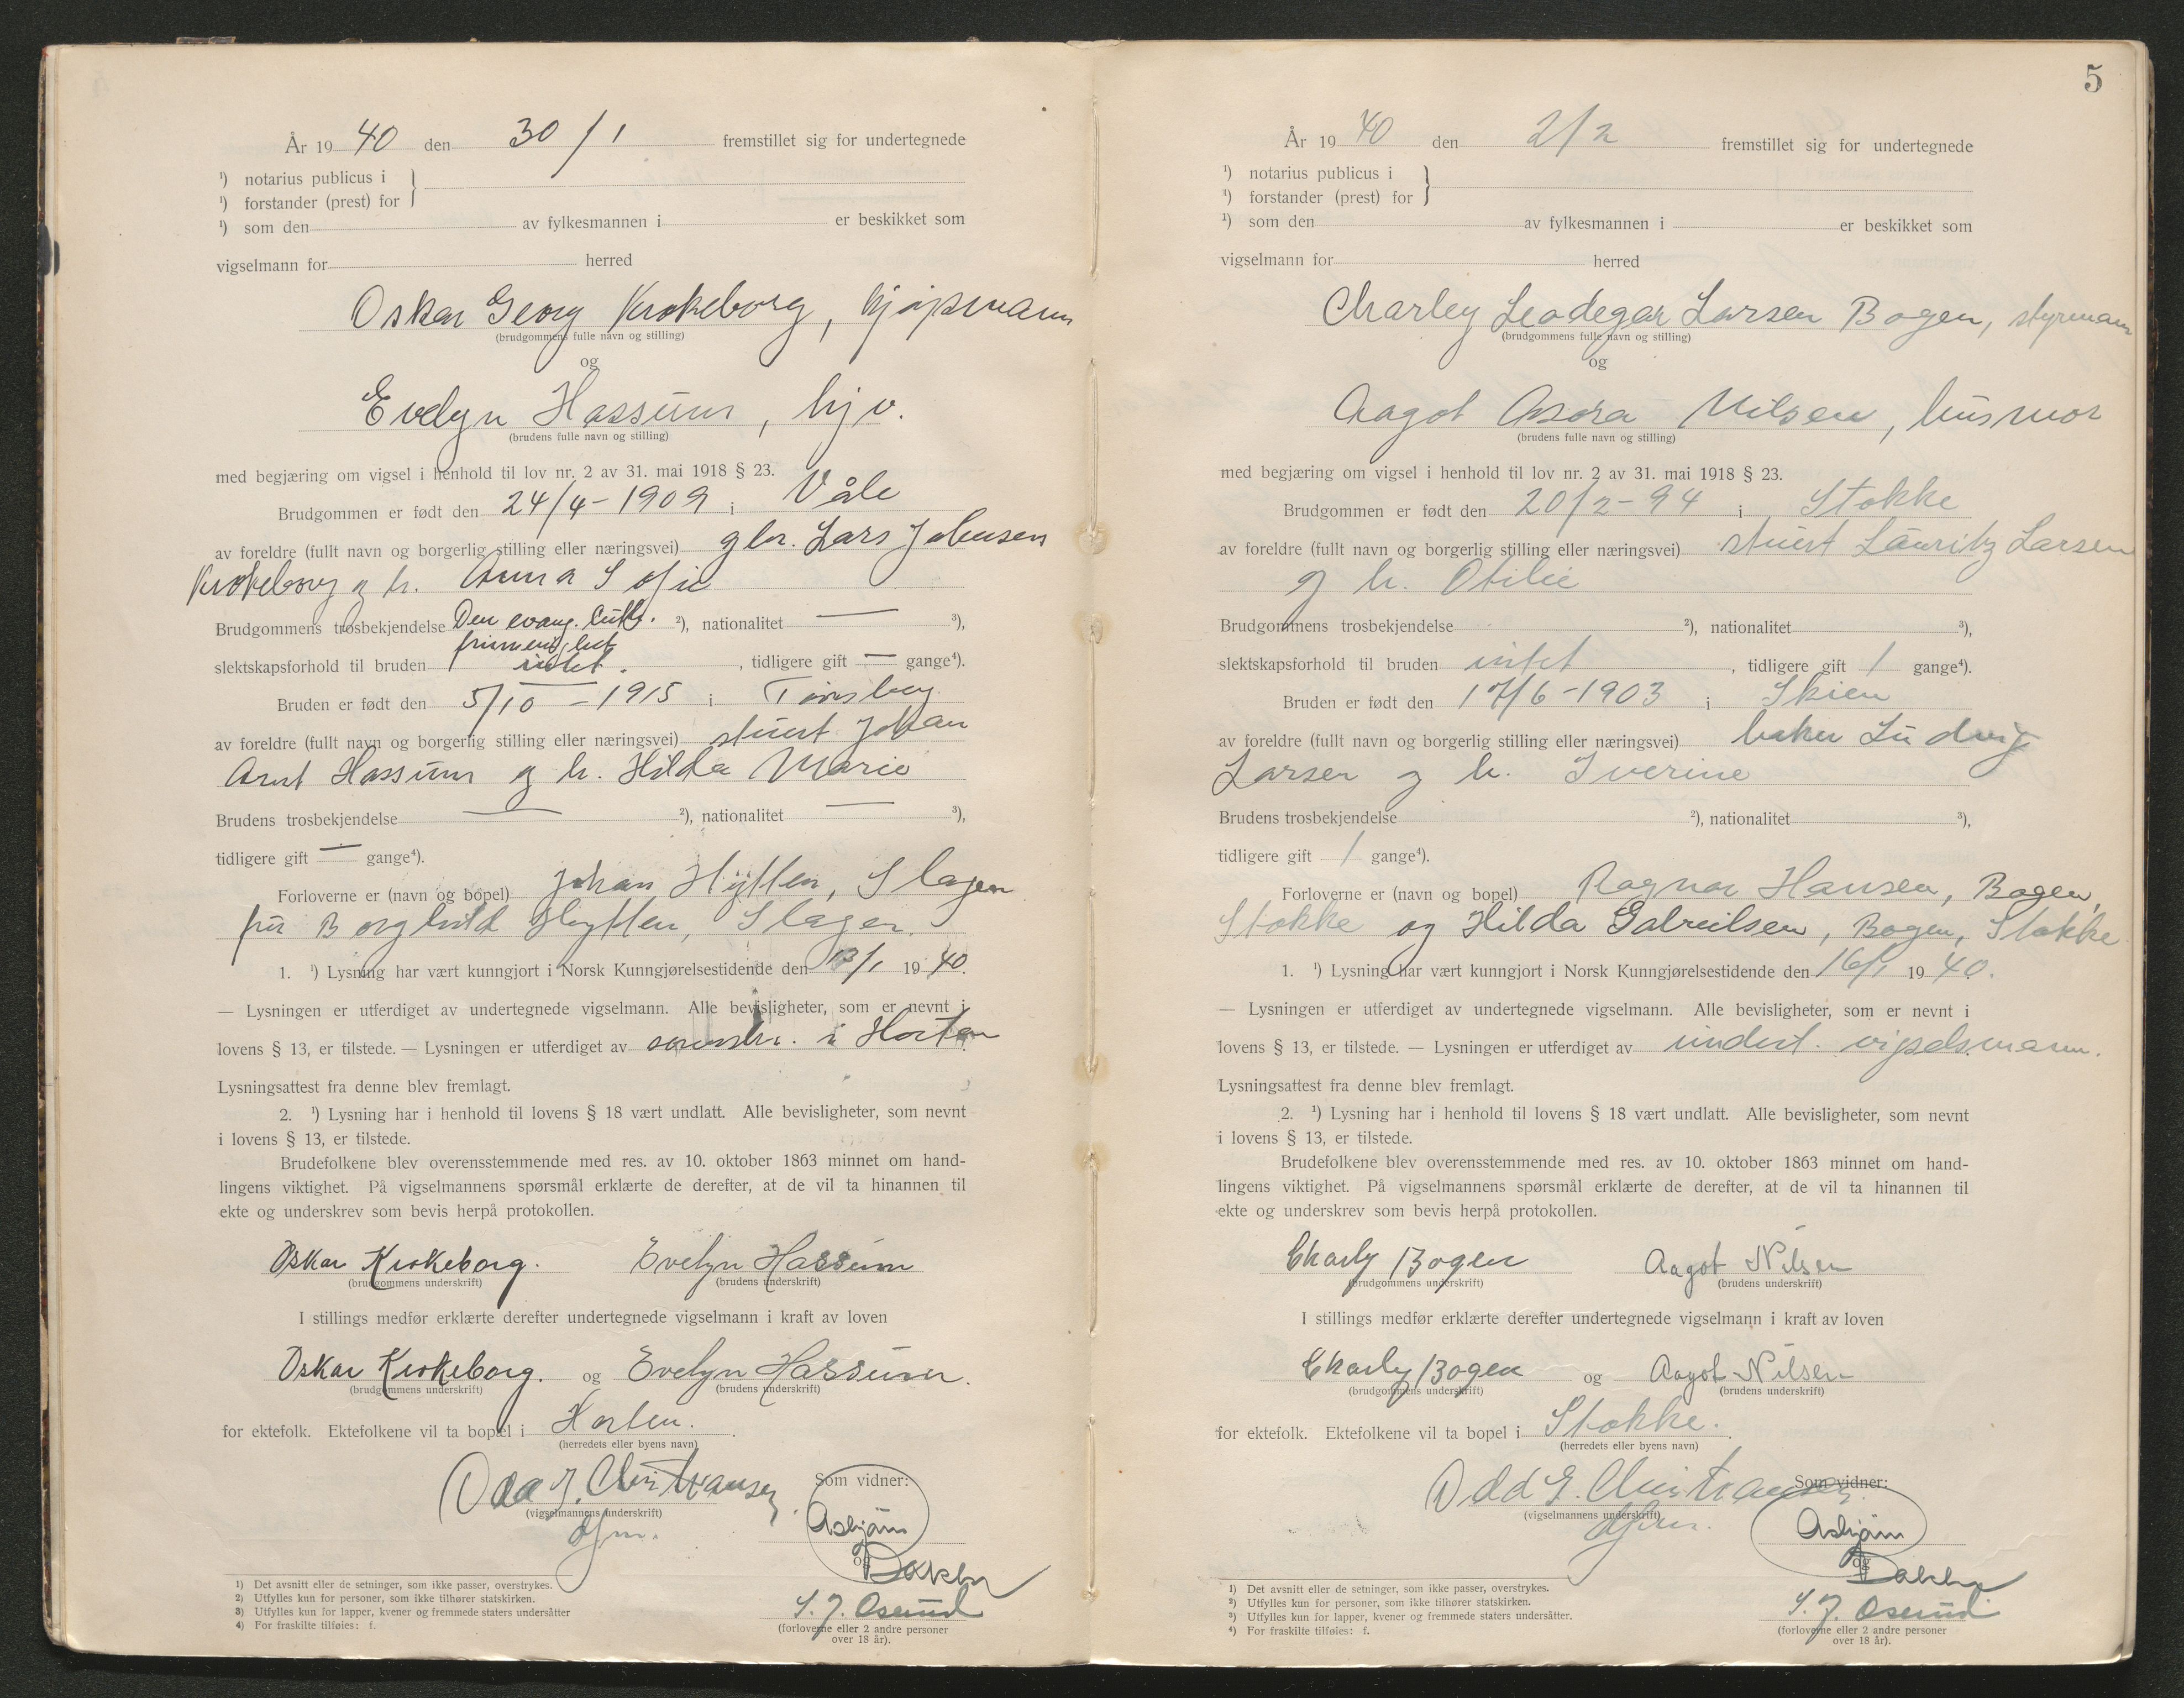 År 19 40 den 30/1 fremstillet sig for undertegnede
¹) notarius publicus i
¹) forstander (prest) for
¹) som den av fylkesmannen i er beskikket som
vigselmann for herred
Oskar Georg Krokeborg, kjøpmann
(brudgommens fulle navn og stilling)
og
Evelyn Hassum, hjv.
(brudens fulle navn og stilling)
med begjæring om vigsel i henhold til lov nr. 2 av 31. mai 1918 § 23.
Brudgommen er født den 24/4-1909 i Våle
av foreldre (fullt navn og borgerlig stilling eller næringsvei) gbr. Lars Johnsen
Krokeborg og h. Anna Sofie
Brudgommens trosbekjendelse Den evang. luth. ²), nationalitet — ³),
frimenighet
slektskapsforhold til bruden intet. , tidligere gift — gange⁴).
Bruden er født den 5/10 - 1915 i Tønsberg
av foreldre (fullt navn og borgerlig stilling eller næringsvei) stuert Johan
Arnt Hassum og h. Hilda Marie
Brudens trosbekjendelse — ²), nationalitet — ³),
tidligere gift — gange⁴).
Forloverne er (navn og bopel) Johan Hytten, Slagen
fru Borghild Hytten, Slagen.
1. ¹) Lysning har vært kunngjort i Norsk Kunngjørelsestidende den 13/1 19 40.
— Lysningen er utferdiget av undertegnede vigselmann. Alle bevisligheter, som er nevnt i
lovens § 13, er tilstede. — Lysningen er utferdiget av sorenskr. i Horten
Lysningsattest fra denne blev fremlagt.
2. ¹) Lysning har i henhold til lovens § 18 vært undlatt. Alle bevisligheter, som nevnt
i lovens § 13, er tilstede.
Brudefolkene blev overensstemmende med res. av 10. oktober 1863 minnet om hand-
lingens viktighet. På vigselmannens spørsmål erklærte de derefter, at de vil ta hinannen til
ekte og underskrev som bevis herpå protokollen.
Oskar Krokeborg. Evelyn Hassum
(brudgommens underskrift) (brudens underskrift)
I stillings medfør erklærte derefter undertegnede vigselmann i kraft av loven
Oskar Krokeborg. og Evelyn Hassum.
(brudgommens underskrift) (brudens underskrift)
for ektefolk. Ektefolkene vil ta bopel i Horten.
(herredets eller byens navn)
Odd G. Christiansen
(vigselmannens underskrift)
Som vidner:
Asbjørn
og
Bakke
S. J. Oserud
(forloverne eller 2 andre personer
over 18 år).
1) Det avsnitt eller de setninger, som ikke passer, overstrykes.
2) Utfylles kun for personer, som ikke tilhører statskirken.
3) Utfylles kun for lapper, kvener og fremmede staters undersåtter
4) For fraskilte tilføies: f.
5
År 19 40 den 2/2 fremstillet sig for undertegnede
¹) notarius publicus i
¹) forstander (prest) for
¹) som den av fylkesmannen i er beskikket som
vigselmann for herred
Charley Leodegar Larsen Bogen, styrmann
(brudgommens fulle navn og stilling)
og
Aagot Assora Nilsen, husmor
(brudens fulle navn og stilling)
med begjæring om vigsel i henhold til lov nr. 2 av 31. mai 1918 § 23.
Brudgommen er født den 20/2-94 i Stokke
av foreldre (fullt navn og borgerlig stilling eller næringsvei) stuert Lauritz Larsen
og h. Otilie
Brudgommens trosbekjendelse ²), nationalitet ³),
slektskapsforhold til bruden intet , tidligere gift 1 gange⁴).
Bruden er født den 17/6-1903 i Skien
av foreldre (fullt navn og borgerlig stilling eller næringsvei) baker Ludvig
Larsen og h. Iverine
Brudens trosbekjendelse ²), nationalitet ³),
tidligere gift 1 gange⁴).
Forloverne er (navn og bopel) Ragnar Hansen, Bogen,
Stokke og Hilda Gabrielsen, Bogen, Stokke
1. ¹) Lysning har vært kunngjort i Norsk Kunngjørelsestidende den 16/1 19 40.
— Lysningen er utferdiget av undertegnede vigselmann. Alle bevisligheter, som er nevnt i
lovens § 13, er tilstede. — Lysningen er utferdiget av undert. vigselsmann.
Lysningsattest fra denne blev fremlagt.
2. ¹) Lysning har i henhold til lovens § 18 vært undlatt. Alle bevisligheter, som nevnt
i lovens § 13, er tilstede.
Brudefolkene blev overensstemmende med res. av 10. oktober 1863 minnet om hand-
lingens viktighet. På vigselmannens spørsmål erklærte de derefter, at de vil ta hinannen til
ekte og underskrev som bevis herpå protokollen.
Charly Bogen Aagot Nilsen
(brudgommens underskrift) (brudens underskrift)
I stillings medfør erklærte derefter undertegnede vigselmann i kraft av loven
Charly Bogen og Aagot Nilsen
(brudgommens underskrift) (brudens underskrift)
for ektefolk. Ektefolkene vil ta bopel i Stokke.
(herredets eller byens navn)
Odd G. Christiansen
(vigselmannens underskrift)
Som vidner:
Asbjørn
og
Bakke
S. J. Oserud
(forloverne eller 2 andre personer
over 18 år).
¹) Det avsnitt eller de setninger, som ikke passer, overstrykes.
²) Utfylles kun for personer, som ikke tilhører statskirken.
³) Utfylles kun for lapper, kvener og fremmede staters undersåtter.
⁴) For fraskilte tilføies: f.